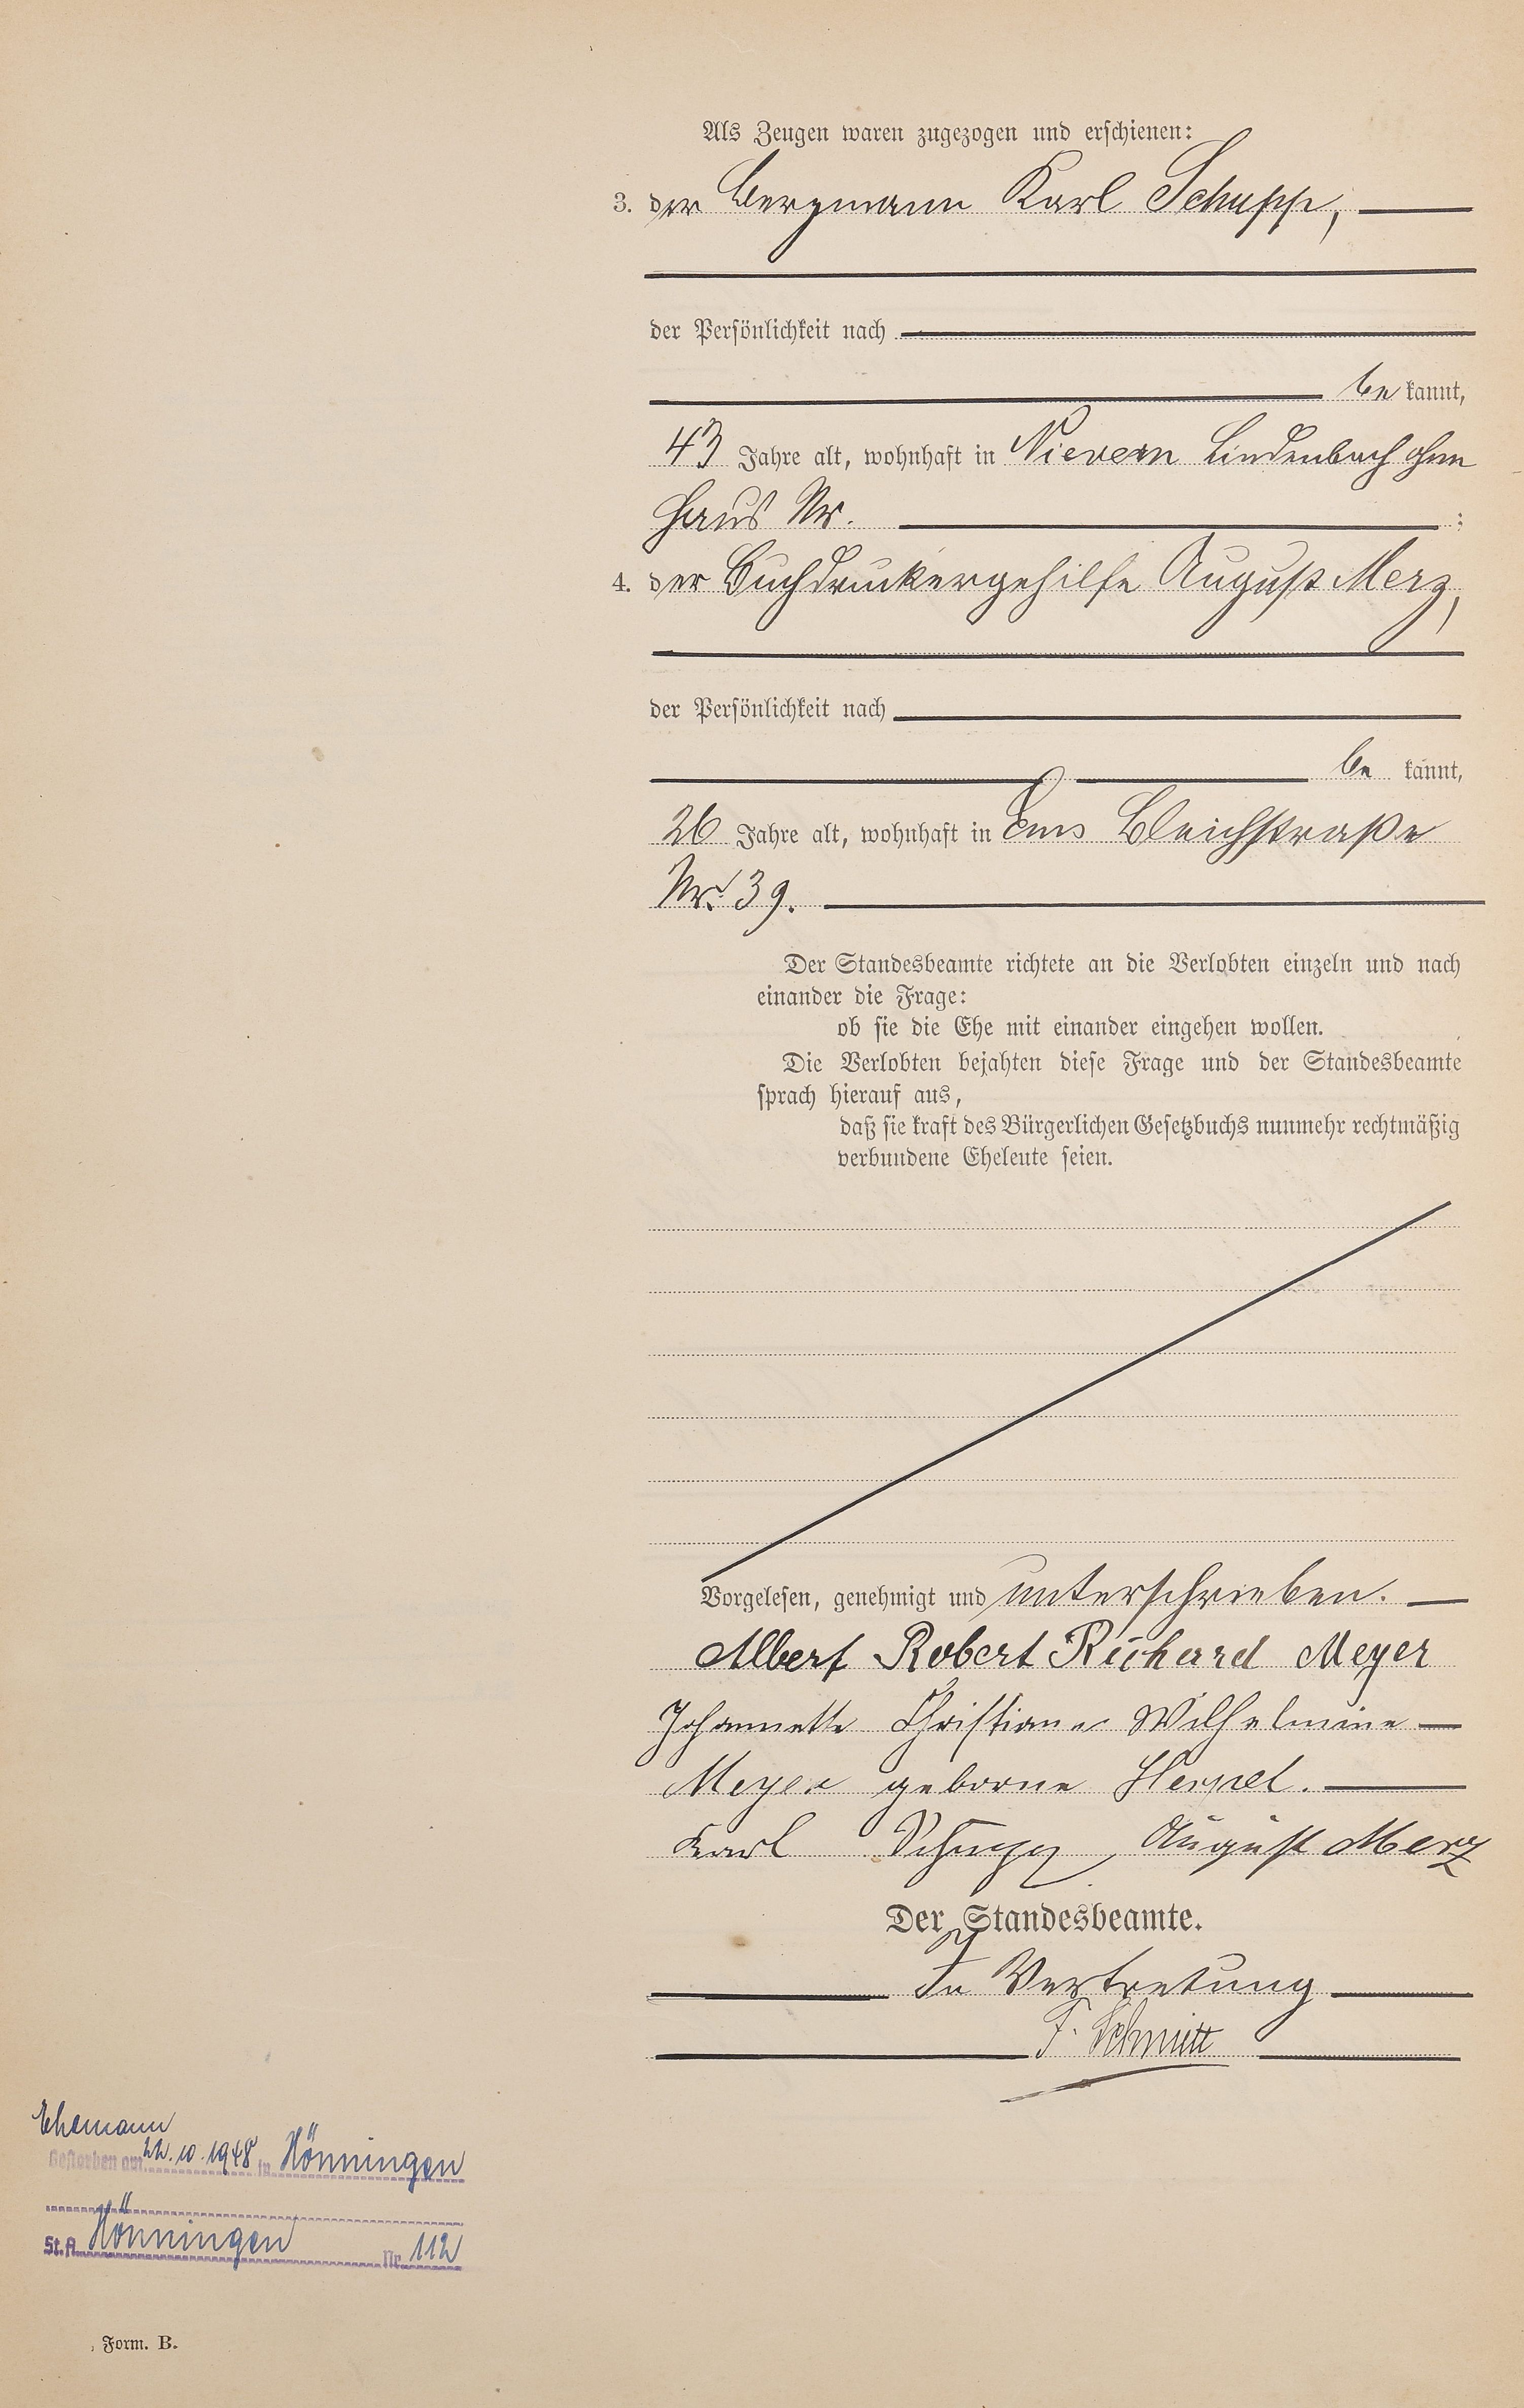 Als Zeugen waren zugezogen und erschienen:
3. der Bergmann Karl Schupp,
der Persönlichkeit nach
be kannt,
43 Jahre alt, wohnhaft in Nievern Lindenbach ohne
Haus Nr. :
4. der Buchdruckergehilfe August Merz,
der Persönlichkeit nach
be kannt,
26 Jahre alt, wohnhaft in Ems Bleichstraße
Nr. 39.
Der Standesbeamte richtete an die Verlobten einzeln und nach
einander die Frage:
ob sie die Ehe mit einander eingehen wollen.
Die Verlobten bejahten diese Frage und der Standesbeamte
sprach hierauf aus,
daß sie kraft des Bürgerlichen Gesetzbuchs nunmehr rechtmäßig
verbundene Eheleute seien.
Vorgelesen, genehmigt und unterschrieben.
Albert Robert Richard Meyer
Johannette Christiane Wilhelmine
Meyer geborne Herpel.
Karl Schupp, August Merz
Der Standesbeamte.
In Vertretung
F. Schmitt
Ehemann
Gestorben am 22.10.1948 in Hönningen
St.A. Hönningen Nr. 112
Form. B.